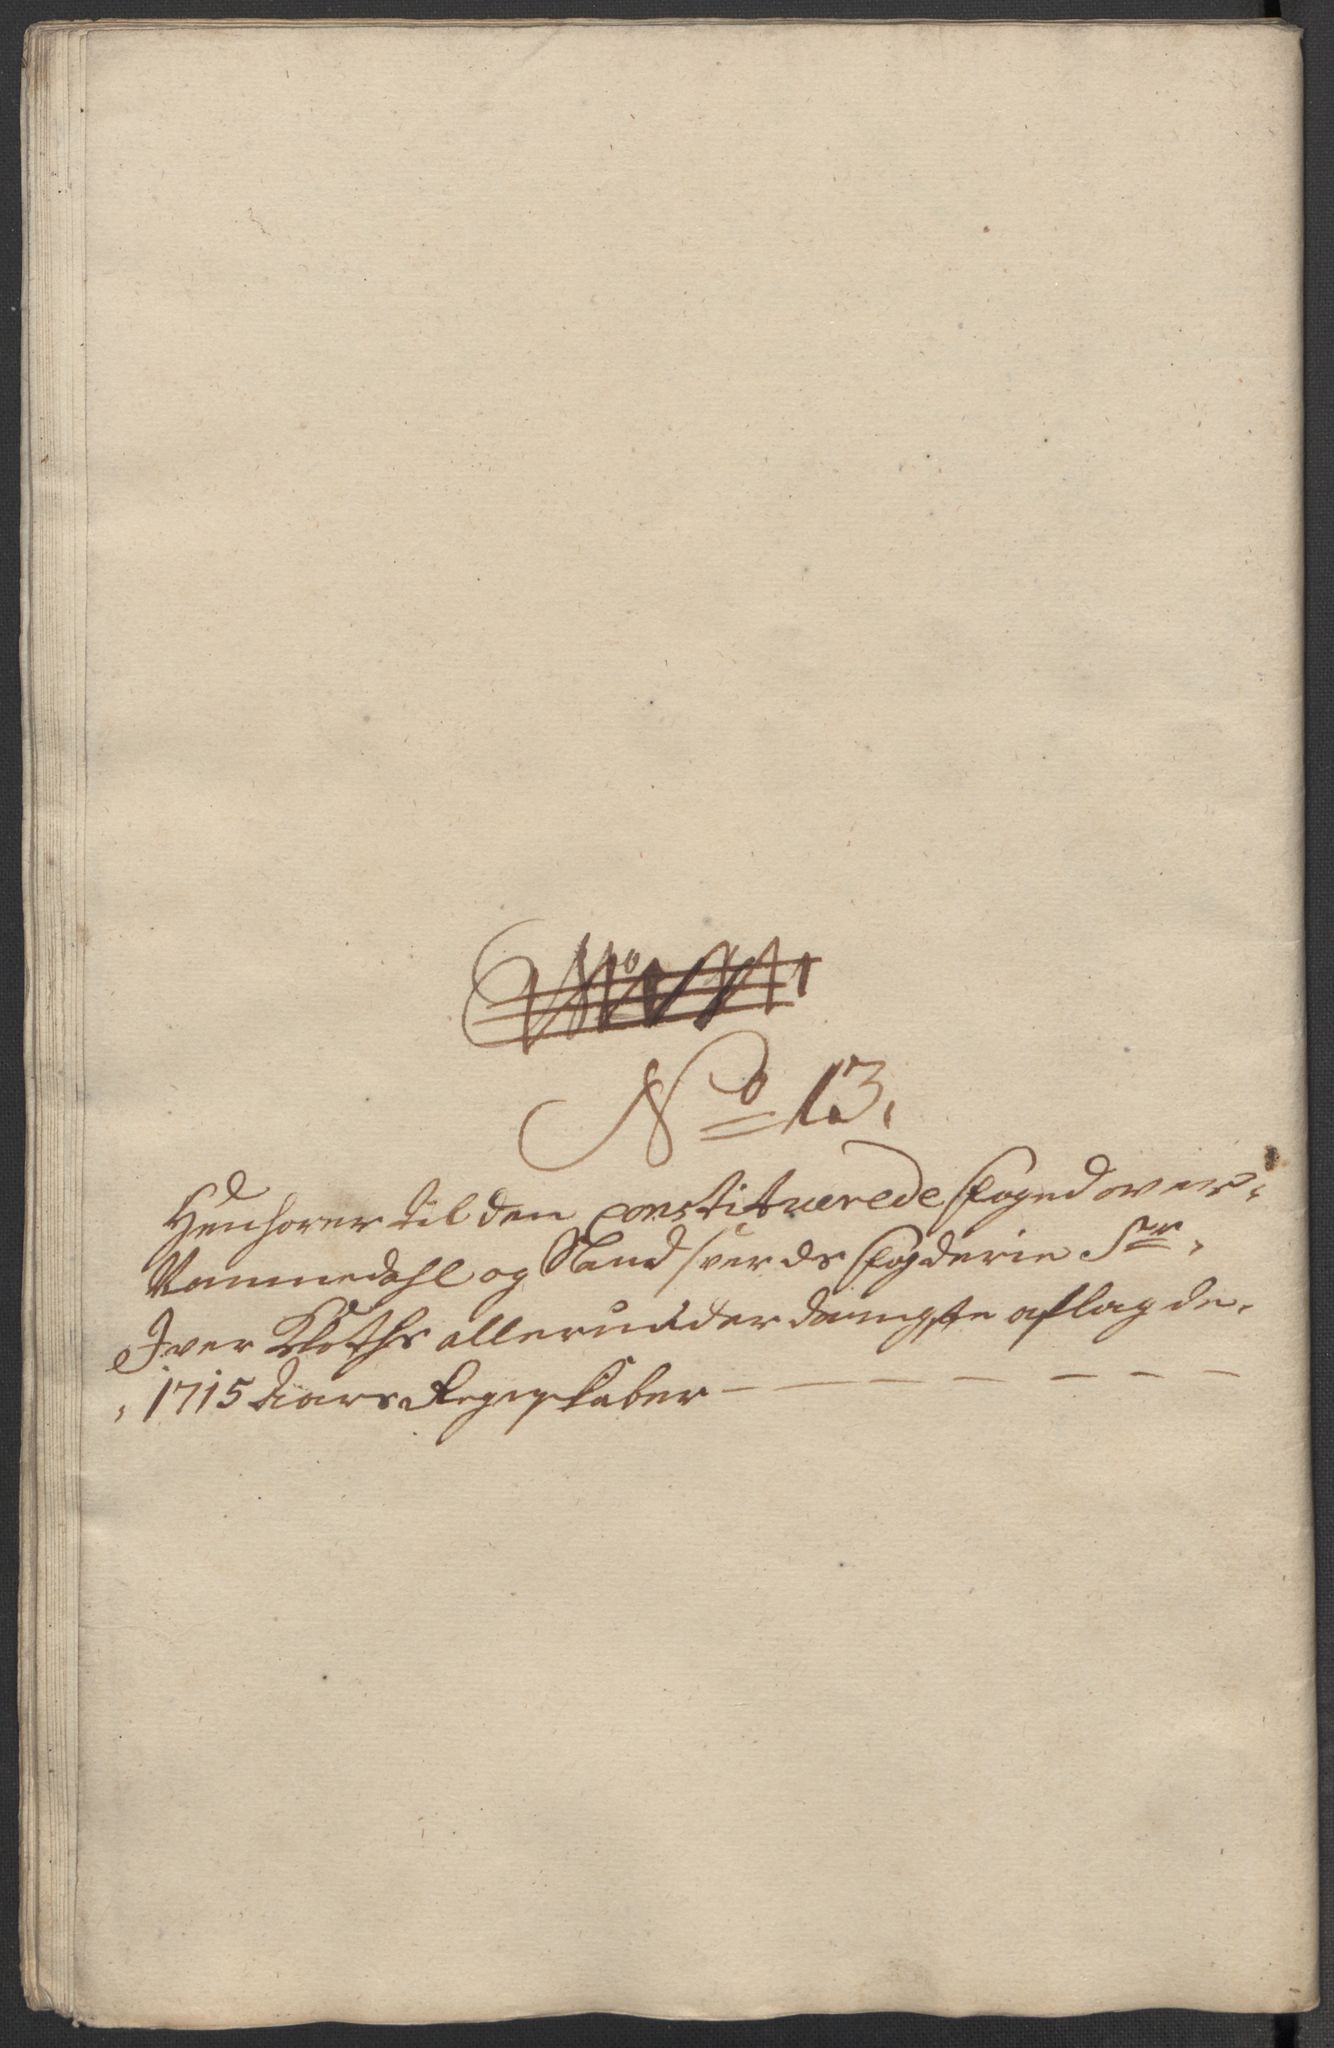 No 13.
Henhører til den constituerede foged over
Nommedahl og Sandsverds fogderie Sr.
Iver Moths allerunderdanigste aflagde
1715 Aars Regnskaber